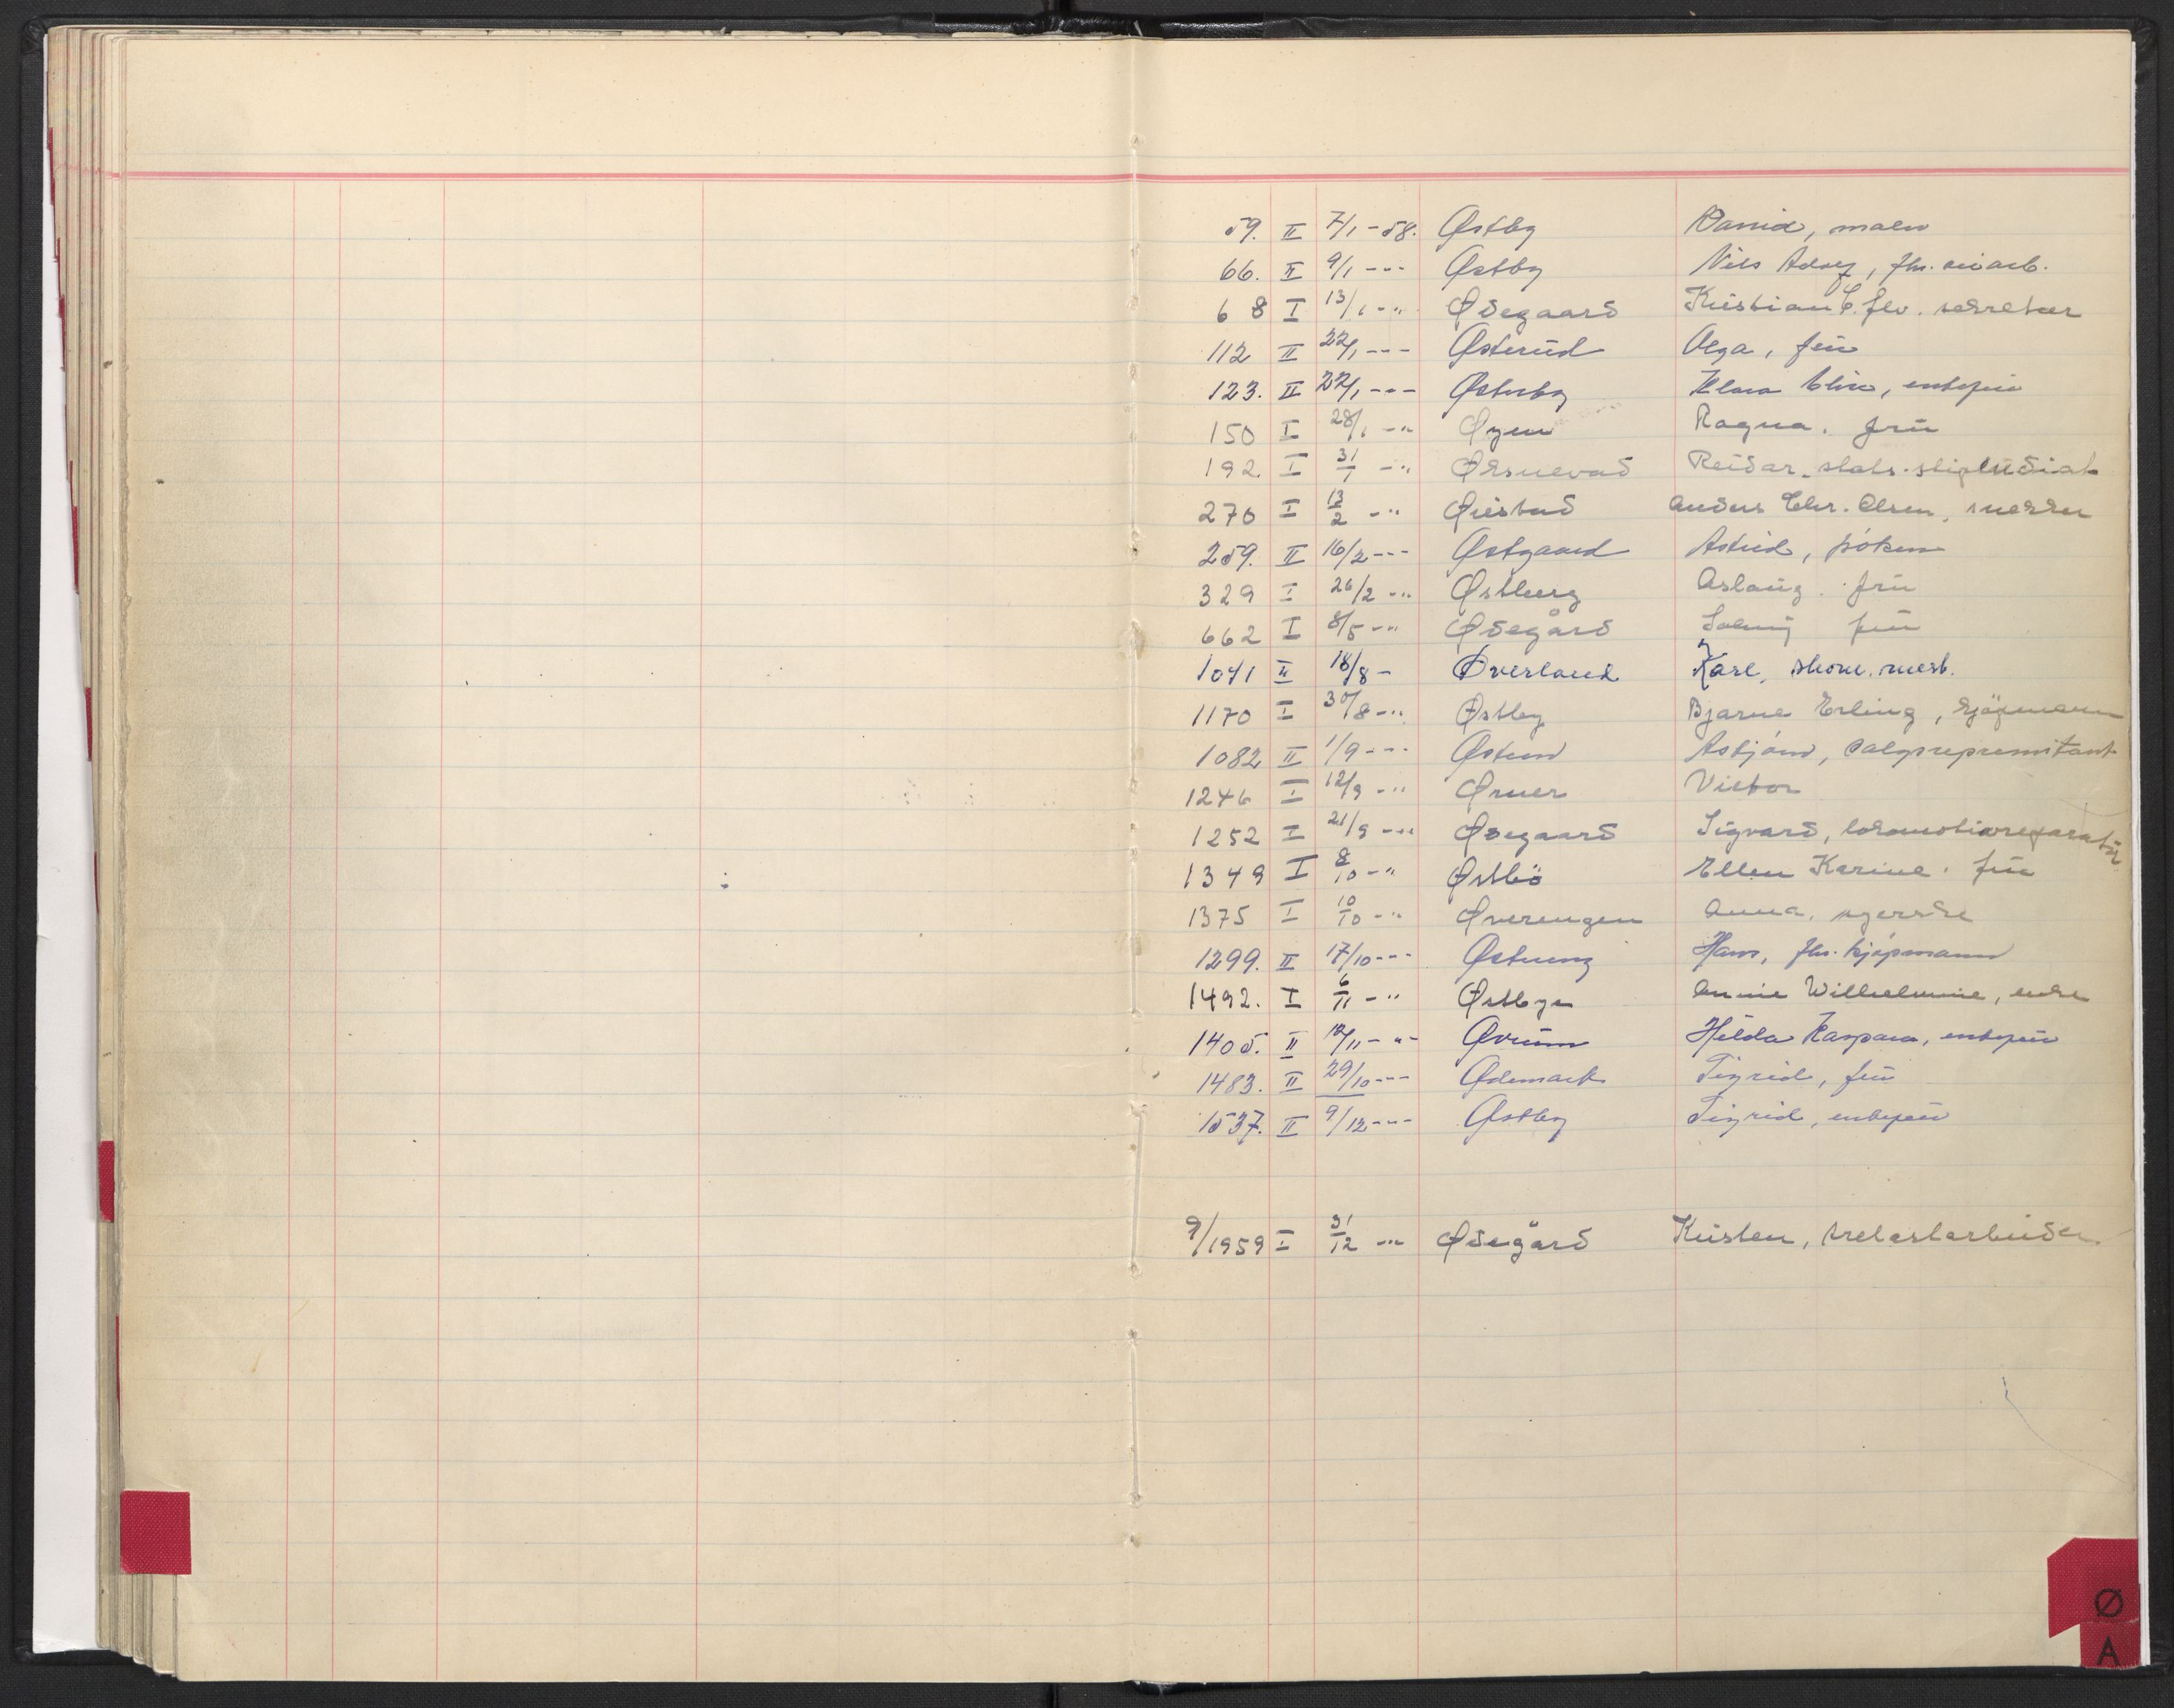 59. II 7/1 - 58. Østby David, maler
66. II 9/1 - " - Østby Nils Adolf, fhv.
68 I 13/1 - " Ødegaard Kristian E. fhv. sekretær
112 II 22/1 - " - Østerud Olga, frü
123. II 22/1 - " - Østerby Klara Elise, enkefrü
150 I 28/1 - " Øyen Ragna. frü
192 I 31/1 - " Ørsnevad Reidar
270 I 13/2 - " Øiestad Anders Chr. Olsen, snekker
259. II 16/2 - " - Østgaard Astrid, frøken
329 I 26/2 - " Østberg Aslaüg. frü
662 I 8/5 - " Ødegård Solveig frü
1041 II 18/8 - Øverland Kåre, skom. mest.
1170 I 30/8 - " Østby Bjarne Erling, kjøpmann
1082 II 1/9 - " - Asbjørn, salgsrepresentant
1246 I 12/9 - " Ørner Victor
1252 I 21/9 - " Ødegaard Sigvard, lokomotivreparatør
1349 I 8/10 - " Østbö Ellen Karine. frü
1375 I 10/10 - " Øverengen Anna, syerske
1299. II 17/10 - " - Østreng Hans, fhv. kjøpmann
1492. I 6/11 - " Østbye Annie Wilhelmine, enke
1405. II 12/11 - " - Øvrüm Hilda Kaspara, enkefrü
1483. II 29/10 - " - Ødemark Sigrid, frü
1537. II 9/12 - " - Østby Sigrid, enkefrü
9/1959 I 31/12 - " Ødegård Kristen,
Ø
A